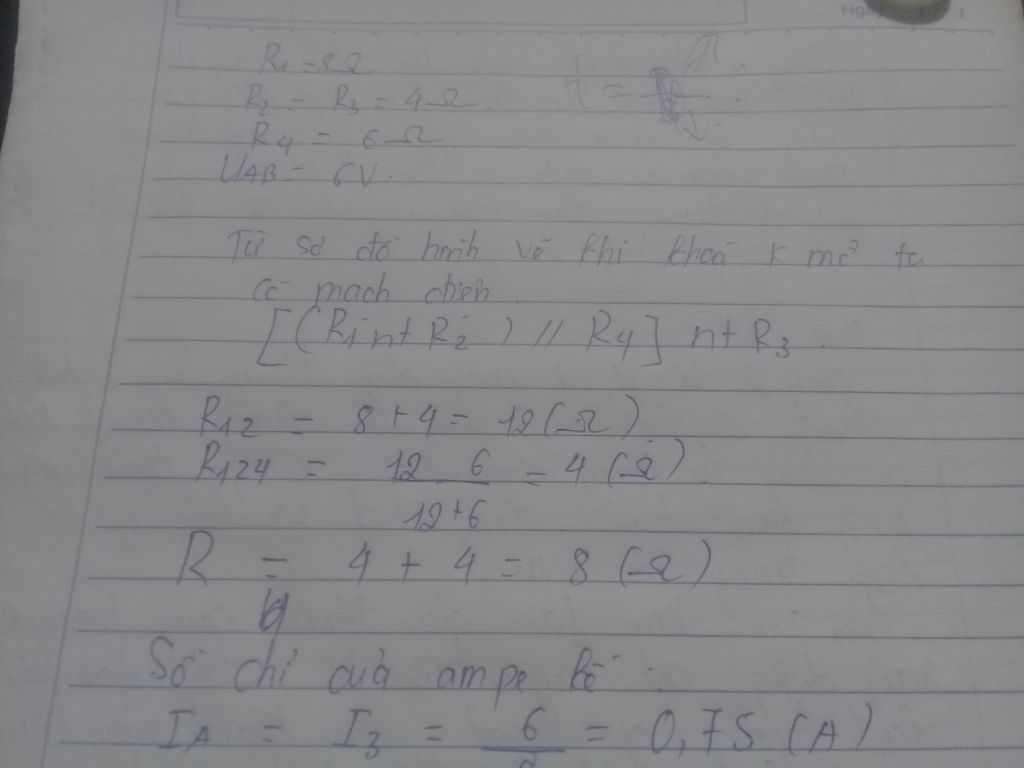 R1 = 8Ω
R2 = R3 = 4Ω
R4 = 6Ω
UAB = 6V
t =
Từ sơ đồ hình vẽ khi khoá K mở ta
có mạch điện
[(R1 nt R2) // R4] nt R3
R12 = 8 + 4 = 12 (Ω)
R124 = 12 6 = 4 (Ω)
12+6
R = 4 + 4 = 8 (Ω)
Số chỉ của ampe kế
IA = I3 = 6 = 0,75 (A)